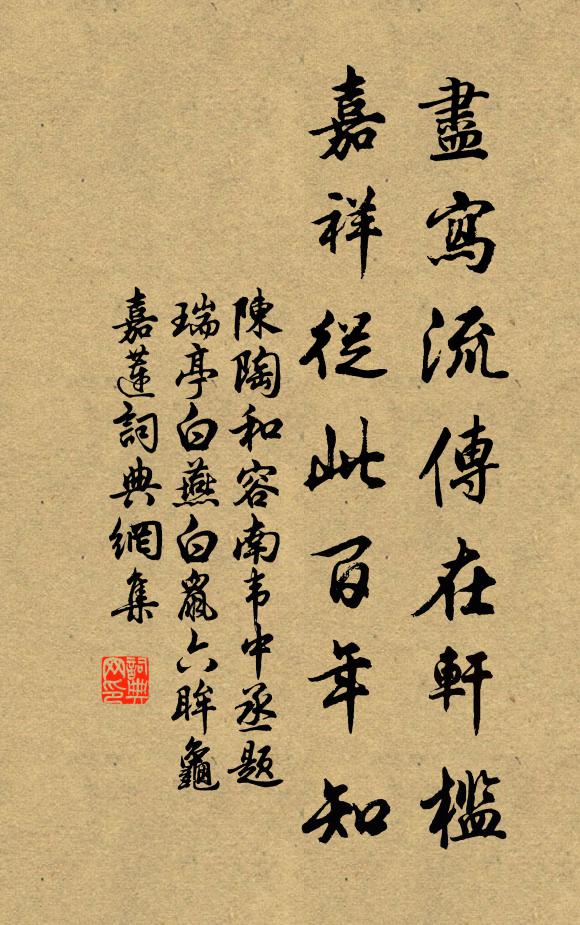 盡寫流傳在軒檻
嘉祥從此百年知
陳陶和容南韦中丞題
瑞亭白燕白鼠六眸龜
嘉蓮詞典網集
詞典
网印